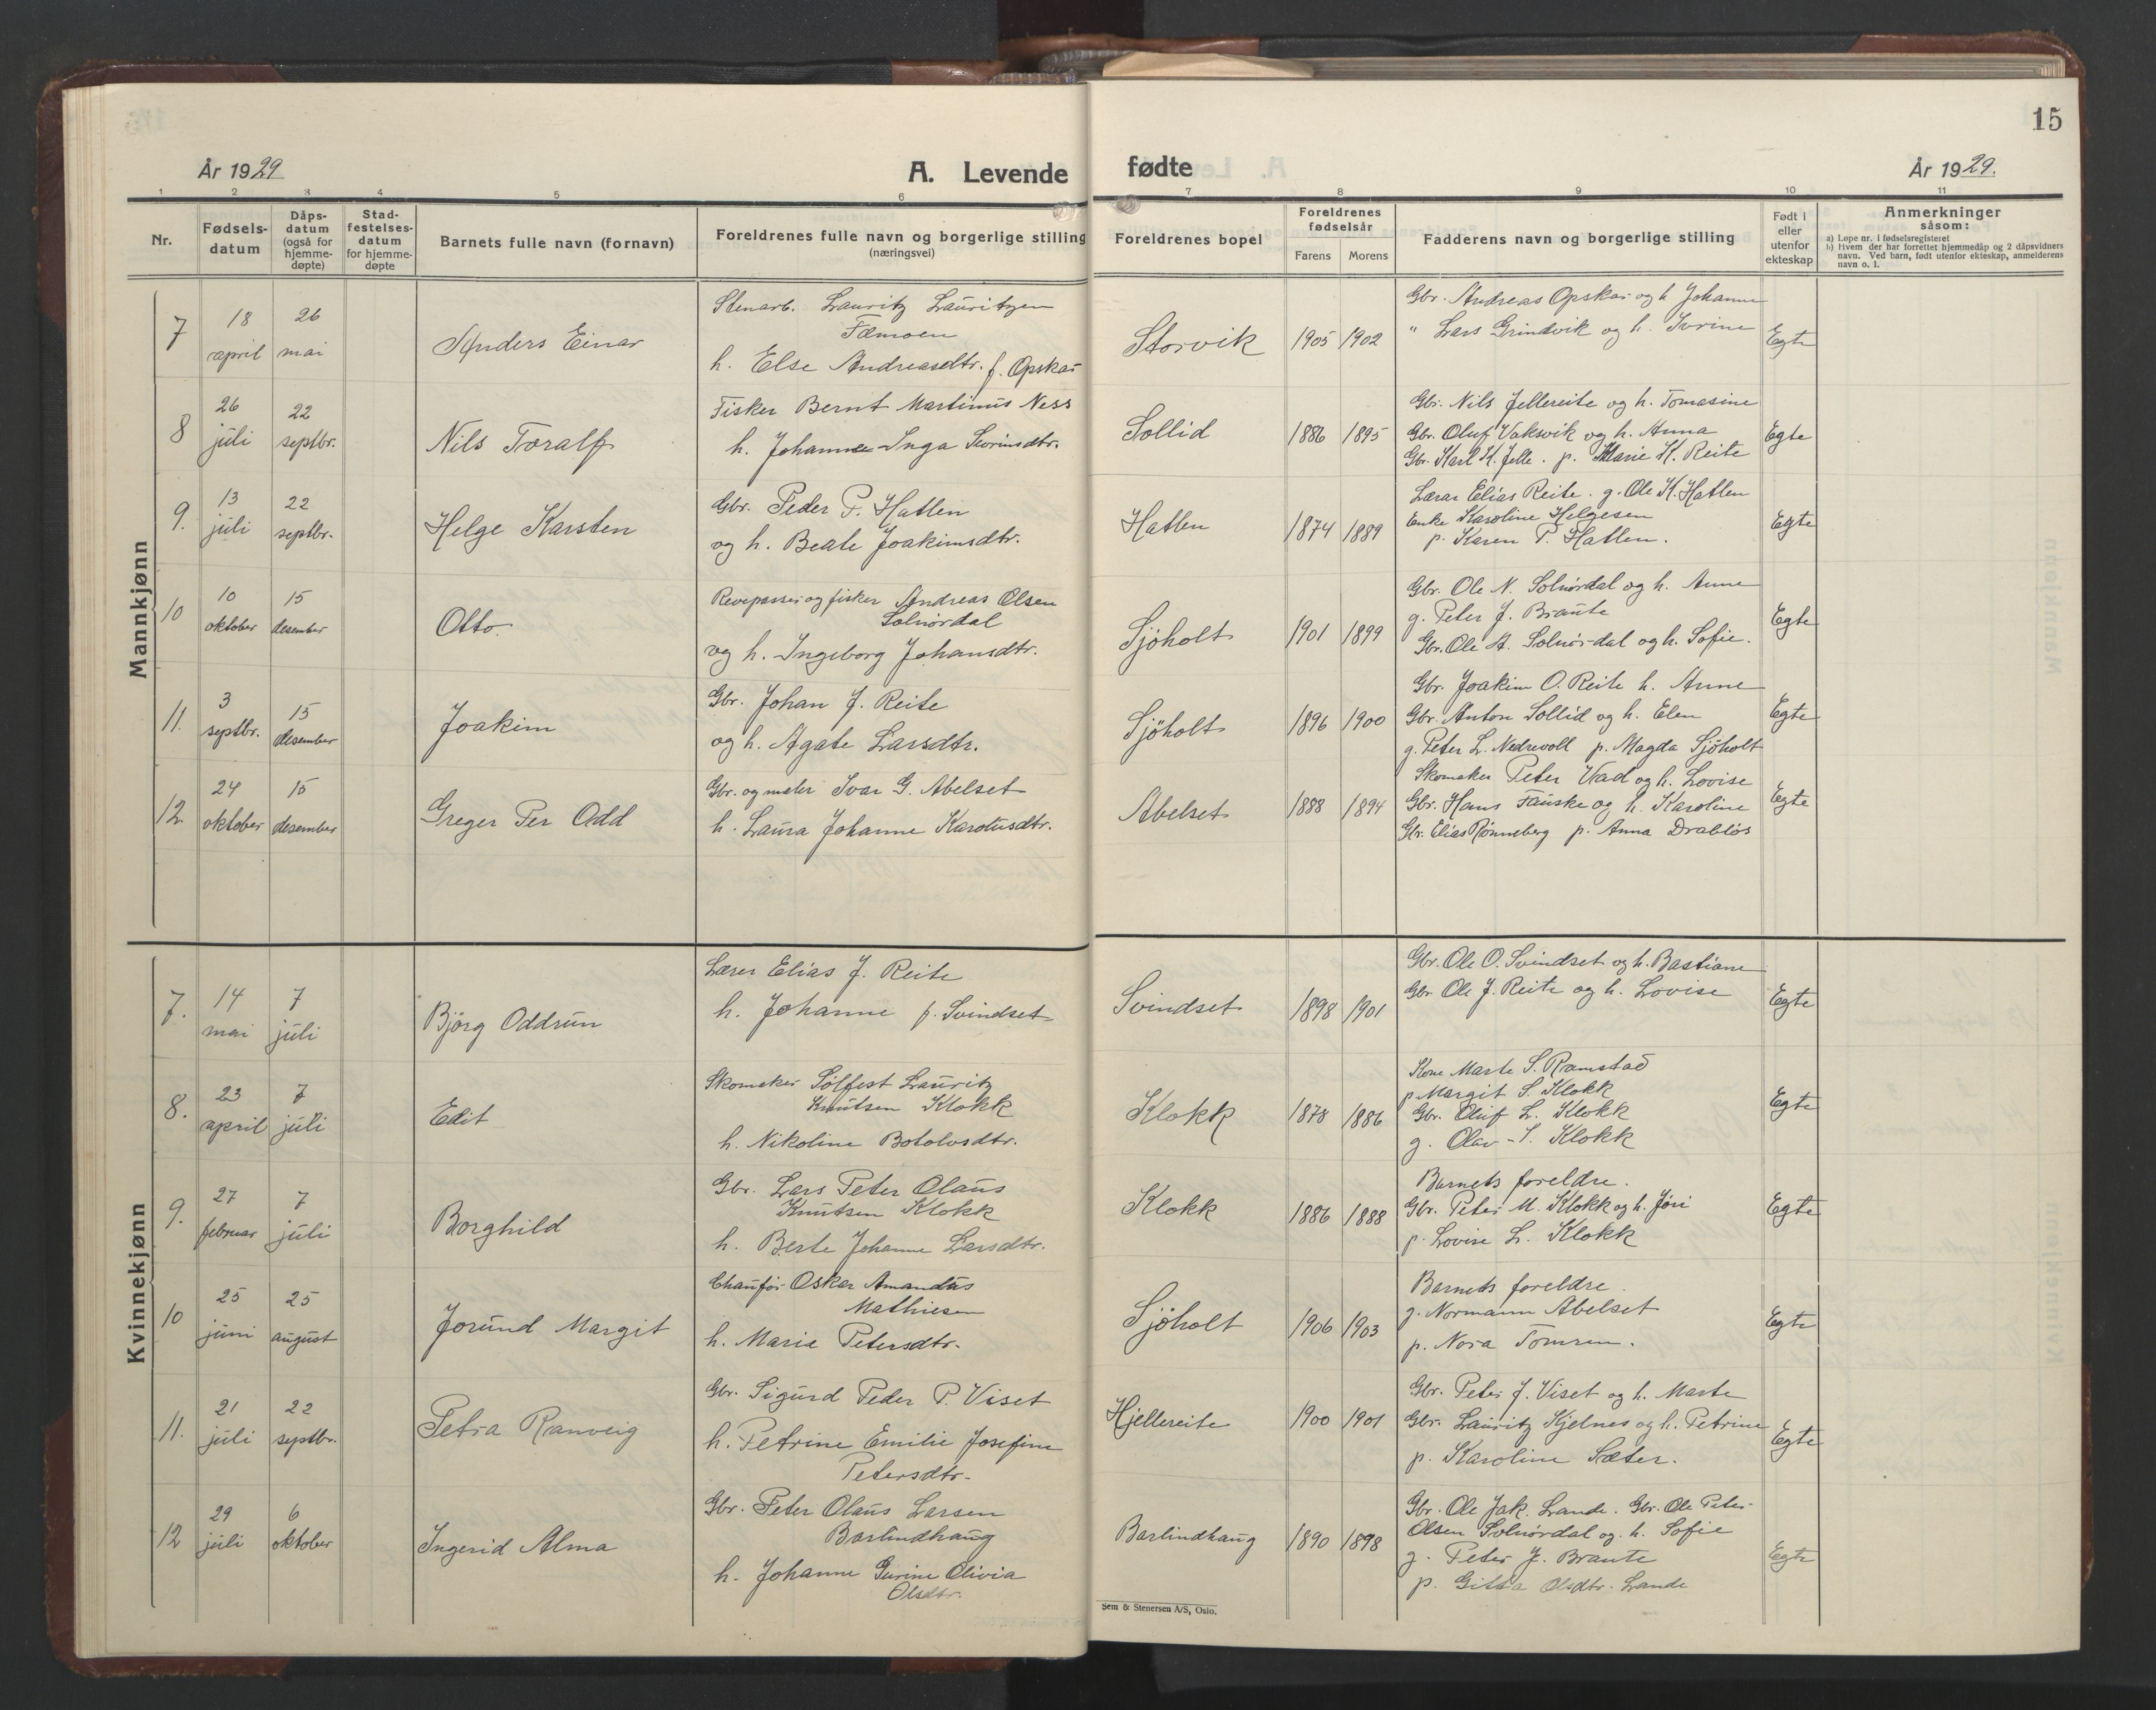 15
År 1929
A. Levende fødte
År 1929.
1 2 3 4 5 6 7 8 9 10 11
Nr.
Fødsels-
datum
Dåps-
datum
(også for
hjemme-
døpte)
Stad-
festelses-
datum
for hjemme-
døpte
Barnets fulle navn (fornavn)
Foreldrenes fulle navn og borgerlige stilling
(næringsvei)
Foreldrenes bopel
Foreldrenes
fødselsår
Farens Morens
Fadderens navn og borgerlige stilling
Født i
eller
utenfor
ekteskap
Anmerkninger
såsom:
a) Løpe nr. i fødselsregisteret
b) Hvem der har forrettet hjemmedåp og 2 dåpsvidners
navn. Ved barn, født utenfor ekteskap, anmelderens
navn o. l.
Mannkjønn
7
18
april
26
mai
Anders Einar
Stenarb. Lauritz Lauritzen
Fæmoen
h. Else Andreasdtr. f. Opskar
Storvik
1905 1902
Gbr. Andreas Opskar og h. Johanne
" Lars Grindvik og h. Iverine
Egte
8
26
juli
22
septbr.
Nils Toralf
Fisker Bernt Martinus Ness
h. Johanne Inga Iverinsdtr.
Sollid
1886 1895
Gbr. Nils Jellereite og h. Tomasine
Gbr. Oluf Vaksvik og h. Anna
Gbr. Karl K. Jelle. p. Marie K. Reite
Egte
9.
13
juli
22
septbr.
Helge Karsten
Gbr. Peder P. Hatlen
og h. Beate Joakimsdtr.
Hatlen
1874 1889
Lærar Elias Reite. g. Ole K. Hatlen
Enke Karoline Helgesen
p. Karen P. Hatlen.
Egte
10
10
oktober
15
desember
Otto
Revepasser og fisker Andreas Olsen
Solnørdal
og h. Ingeborg Johansdtr.
Sjøholt
1901 1899
Gbr. Ole N. Solnørdal og h. Anne
g. Peter J. Braute
Gbr. Ole A. Solnørdal og h. Sofie.
Egte
11.
3
septbr.
15
desember
Joakim
Gbr. Johan J. Reite
og h. Agate Larsdtr.
Sjøholt
1896 1900
Gbr. Joakim O. Reite h. Anne
Gbr. Anton Sollid og h. Elen
g. Peter L. Nedrevoll p. Magda Sjøholt
Egte
12
24
oktober
15
desember
Greger Per Odd
Gbr. og maler Ivar G. Abelset
h. Laura Johanne Karolusdtr.
Abelset
1888 1894
Skomaker Peter Vad og h. Lovise
Gbr. Hans Fauske og h. Karoline
Gbr. Elias Rønneberg p. Anna Drabløs
Egte
Kvinnekjønn
7.
14
mai
7
juli
Bjørg Oddrun
Lærer Elias J. Reite
h. Johanne f. Svindset
Svindset
1898 1901
Gbr. Ole O. Svindset og h. Bastiane
Gbr Ole J. Reite og h. Lovise
Egte
8.
23
april
7
juli
Edit
Skomaker Sølfest Lauritz
Knutsen Klokk
h. Nikoline Botolvsdtr.
Klokk
1878 1886
Kone Marte S. Ramstad
p. Margit S. Klokk
Gbr. Oluf L. Klokk
g. Olav S. Klokk
Egte
9.
27
februar
7
juli
Borghild
Gbr. Lars Peter Olaus
Knutsen Klokk
h. Berte Johanne Larsdtr.
Klokk
1886 1888
Barnets foreldre.
Gbr. Peter M. Klokk og h. Jøri
p. Lovise L. Klokk
Egte
10
25
juni
25
august
Jorund Margit
Chauför Oskar Amandus
Mathiesen
h. Marie Petersdtr.
Sjøholt
1906 1903
Barnets foreldre.
g. Normann Abelset
p. Nora Tomren.
Egte
11.
21
juli
22
septbr.
Petra Ranveig
Gbr. Sigurd Peder P. Viset
h. Petrine Emilie Josefine
Petersdtr.
Hjellereite
1900 1901
Gbr. Peter J. Viset og h. Marte
Gbr. Lauritz Kjelnes og h. Petrine
p. Karoline Sæter.
Egte
12
29
juli
6
oktober
Ingerid Alma
Gbr. Peter Olaus Larsen
Barlindhaug
h. Johanne Gurine Olivia
Olsdtr.
Barlindhaug
1890 1898
Gbr. Ole Jak. Lande. Gbr. Ole Peter
Olsen Solnørdal og h. Sofie
g. Peter J. Braute
p. Gitta Olsdtr. Lande
Egte
Sem & Stenersen A/S, Oslo.